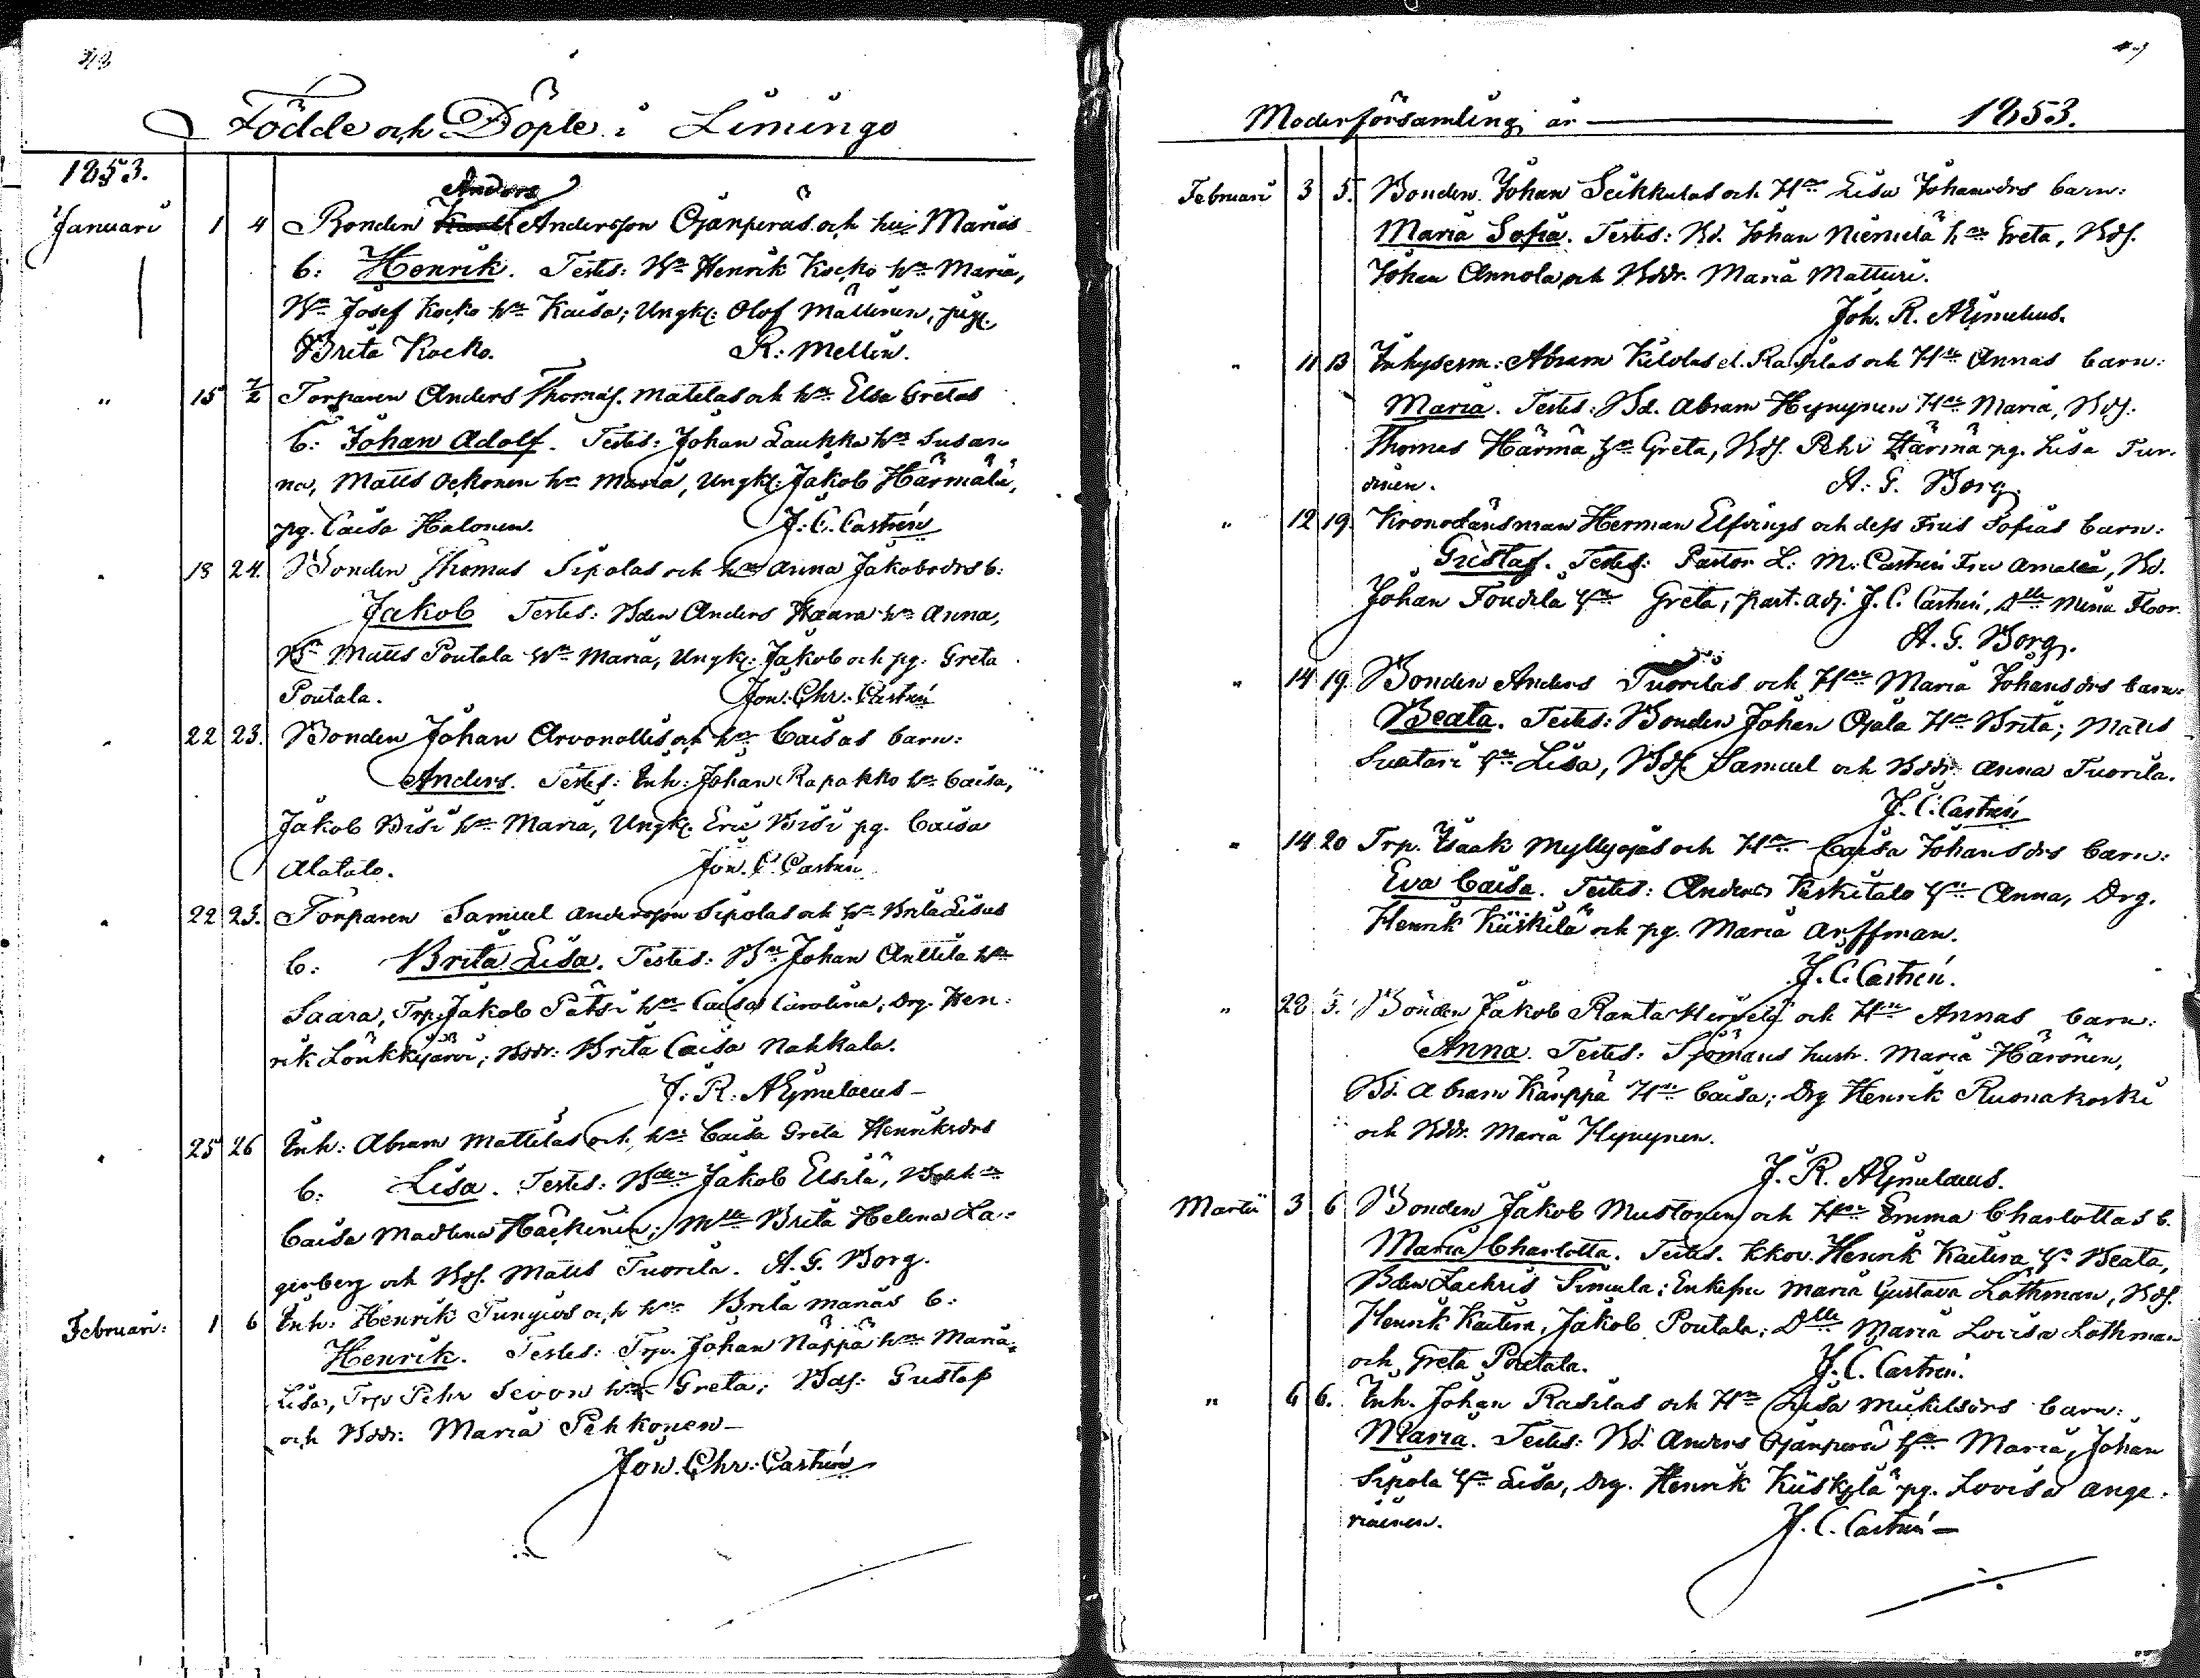 Födde och Döpte i Limingo
1853.
Anders
Januari 1 4 Bonden Andersson Ojanperäs och hu: Marias
b: Henrik. Testes: Bn Henrik Kocko hn Maria,
Bn Josef Kocko hn Kaisa; Ungk: Olof Mällinen, pig.
Brita Kocko. R: Mellin.
" 15 Torparen Anders Thomæs. Matilas och hn Elsa Gretas
b: Johan Adolf. Testes: Johan Laukka hn Susan-
na, Matts Ockonen hn Maria, Ungk: Jakob Härmälä,
pg. Caisa Halonen. J. C. Castrén
" 24. Bonden Thomas Sipolas och hn Anna Jakobsdrs b:
Jakob Testes: Bden Anders Haara hn Anna,
Bn Matts Poutala hn Maria, Ungk: Jakob och pg: Greta
Poutala. Jon: Chr: Castrén
" 22 23. Bonden Johan Arvonollis och hn Caisas barn:
Anders. Testes: Inh: Johan Rapakko hn Caisa,
Jakob Bisi hn Maria, Ungk. Eric Bisi pg. Caisa
Alatalo. Jon. C. Castrén
" 22 23. Torparen Samuel Andersson Sipolas och hn Brita Lisas
b: Brita Lisa. Testes: Bn Johan Anttila hn
Saara, Trp. Jakob Pätsi hn Caisa Carolina; Drg. Hen-
rik Loukkojärvi; Bdr: Brita Caisa Nahkala.
J: R: Aejmelaeus –
" 25 26 Inh: Abram Mattilas och hn Caisa Greta Henriksdrs
b: Lisa. Testes: Bden Jakob Elsilä,
Caisa Madlena Häckinen; Mlle Brita Helena La-
gerberg och Bds. Matts Tuorila. A. G. Borg.
Februari: 1 6 Inh: Henrik Tungivs och hn Brita Marias b:
Henrik. Testes: Trp. Johan Näppä hn Maria
Lisa, Trp Pehr Sevon hn Greta; Bds: Gustaf
och Bdr: Maria Pehkonen –
Jon. Chr: Castrén
Moderförsamling år 1853.
Februari 3 5. Bonden Johan Seikkalas och Hn Lisa Johansdrs barn:
Maria Sofia. Testes: Bd. Johan Niemelä hn Greta, Bds.
Johan Annola och Bddr. Maria Matturi.
Joh. R. Aejmelæus.
" 11 13 Inhyserm: Abram Kilolas el. Rasilas och Hu Annas barn:
Maria. Testes: Bd. Abram Hyvynen Hu Maria, Bds:
Thomas Härmä hn Greta, Bds. Pehr Härmä pg. Lisa Tur-
dinen. A. G. Borg.
" 12 19. Kronolänsman Herman Elfvings och dess Frus Sofias barn:
Gustaf. Testes: Pastor L: M: Castrén Fru Amalia, Bd.
Johan Foudila hn Greta; past. adj. J. C. Castrén, Dlle Mina Floor.
A. G. Borg.
" 14 19. Bonden Anders Tuorilas och Hu Maria Johansdrs barn:
Beata. Testes: Bonden Johan Ojala Hn Brita; Matts
Suatari hn Lisa, Bds. Samuel och Bddr. Anna Tuorila.
J. C. Castrén
" 14 20 Trp. Isaak Myllyojas och Hu Caisa Johansdrs barn:
Eva Caisa. Testes: Anders Keskitalo hn Anna, Drg.
Henrik Kiiskilä och pg. Maria Arffman.
J. C. Castrén.
" 28 Bonden Jakob Ranta Hirvelä och Hu Annas barn:
Anna. Testes: Sjömans hustr. Maria Härönen,
Bd. Abram Känppä Hu Caisa; Drg Henrik Ruonakoski
och Bddr. Maria Hyvynen.
J. R. Aejmelaeus.
Martii 3 6 Bonden Jakob Mustonen och Hu Emma Charlottas b.
Maria Charlotta. Testes. kkov. Henrik Kaitera hn Beata,
Bden Zachris Simula; Enkefru Maria Gustava Lothman, Bds.
Henrik Kaitera, Jakob Poutala; Dlle Maria Lovisa Lothman
och Greta Poutala. J. C. Castrén.
" 6 6. Inh. Johan Rasilas och Hu Lisa Mickelsdrs barn:
Maria. Testes: Bd. Anders Ojanperä hn Maria, Johan
Sipola hn Lisa, Drg. Henrik Kiiskilä pg. Lovisa Ange-
riainen. J. C. Castrén –